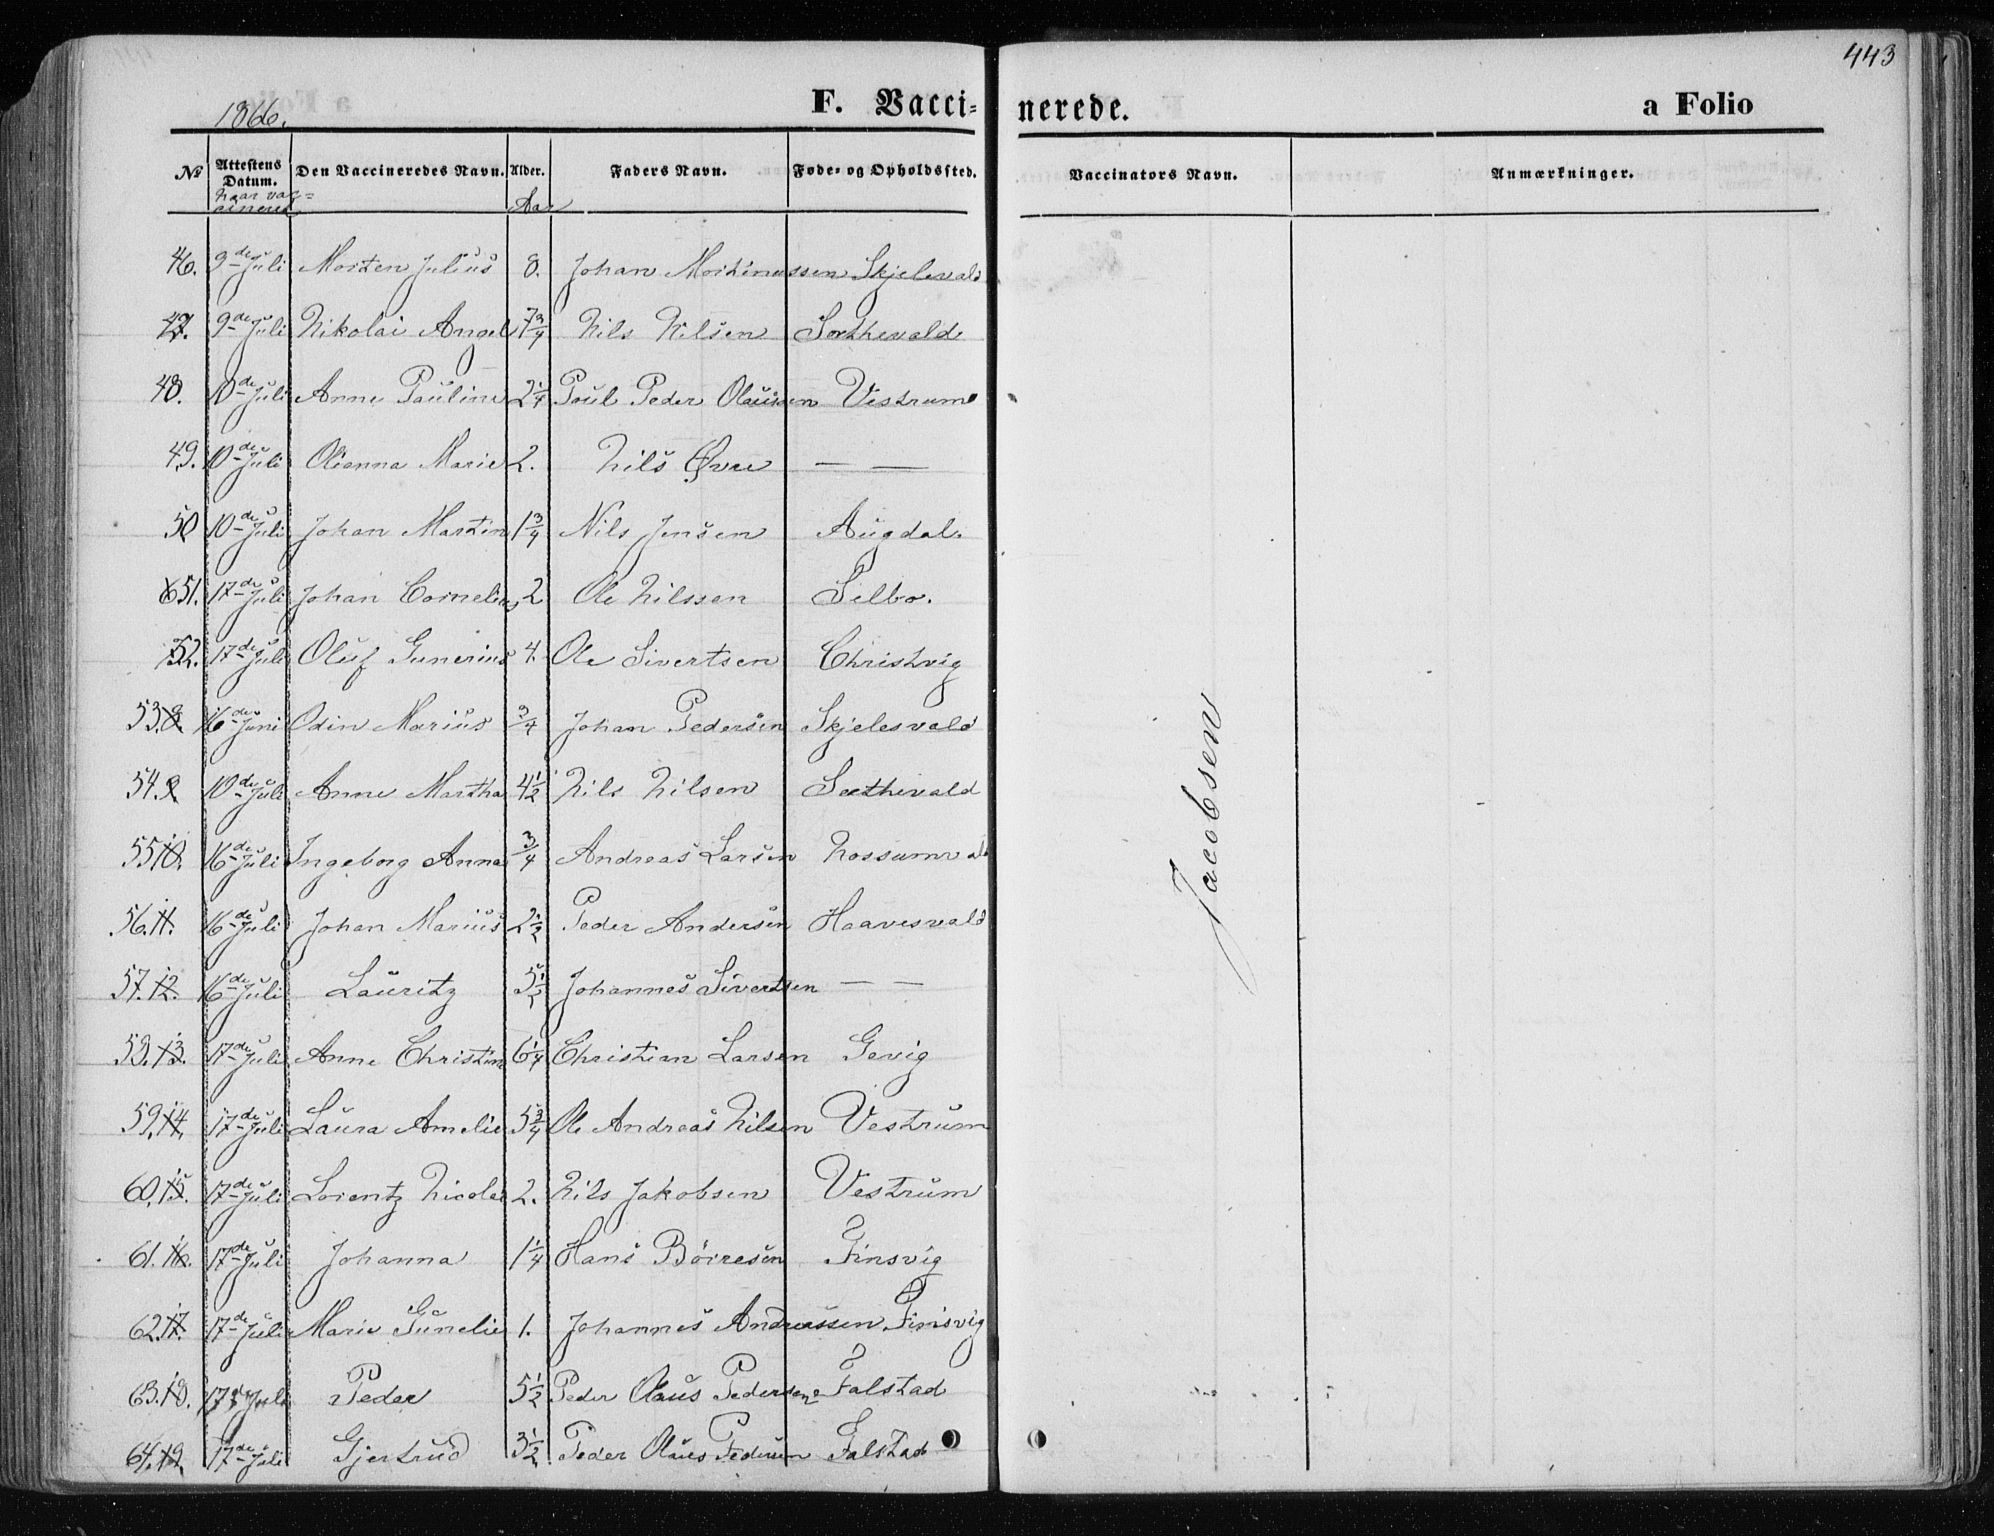 443
1866.
F. Vacci= nerede.
a Folio
No
Attestens Datum.
Den Vaccineredes Navn.
Alder.
Faders Navn.
Føde- og Opholdssted.
Vaccinators Navn.
Anmærkninger.
naar vac=
cineret
Aar
46. 9de Juli Morten Julius 8. Johan Mortinussen Skjelsvald
47. 9de Juli Nikolai Angel 7 3/4 Nils Nilsen Sorthevald
48. 10de Juli Anne Pauline 2 1/4 Paul Peder Olaussen Vestrum
49. 10de Juli Olianna Marie 2. Nils Øvre — —
50 10de Juli Johan Martin 1 3/4 Nils Jensen Augdal
51. 17de Juli Johan Cornelius 2 Ole Nilssen Selbo.
52. 17de Juli Oluf Gunerius 4. Ole Sivertsen Christvig
53. 8. 16de Juni Odin Marius 3/4 Johan Pedersen Skjelesvald
54. 9. 10de Juli Anne Martha 4 1/2 Nils Nilsen
55 10. 16de Juli Ingeborg Anna 3/4 Andreas Larsen
56. 11. 16de Juli Johan Marius 2 1/2 Peder Andersen Haavesvald
57. 12. 16de Juli Lauritz 5 1/2 Johannes Sivertsen — —
58. 13. 17de Juli Anne Christin 6 1/4 Christian Larsen Gevig
59. 14. 17de Juli Laura Amelie 5 3/4 Ole Andreas Nilsen Vestrum
60. 15. 17de Juli Lorentz Nicolai 2. Nils Jakobsen Vestrum
61. 16. 17de Juli Johanna 1 1/4 Hans Börresen Finsvig
62. 17. 17de Juli Marie Gunelie 1. Johannes Andreassen Finsvig
63. 18. 17de Juli Peder 5 1/2 Peder Olaus Pedersen Falstad
64. 19. 17de Juli Gjertrud 3 1/2 Peder Olaus Pedersen Falstad
Jacobsen